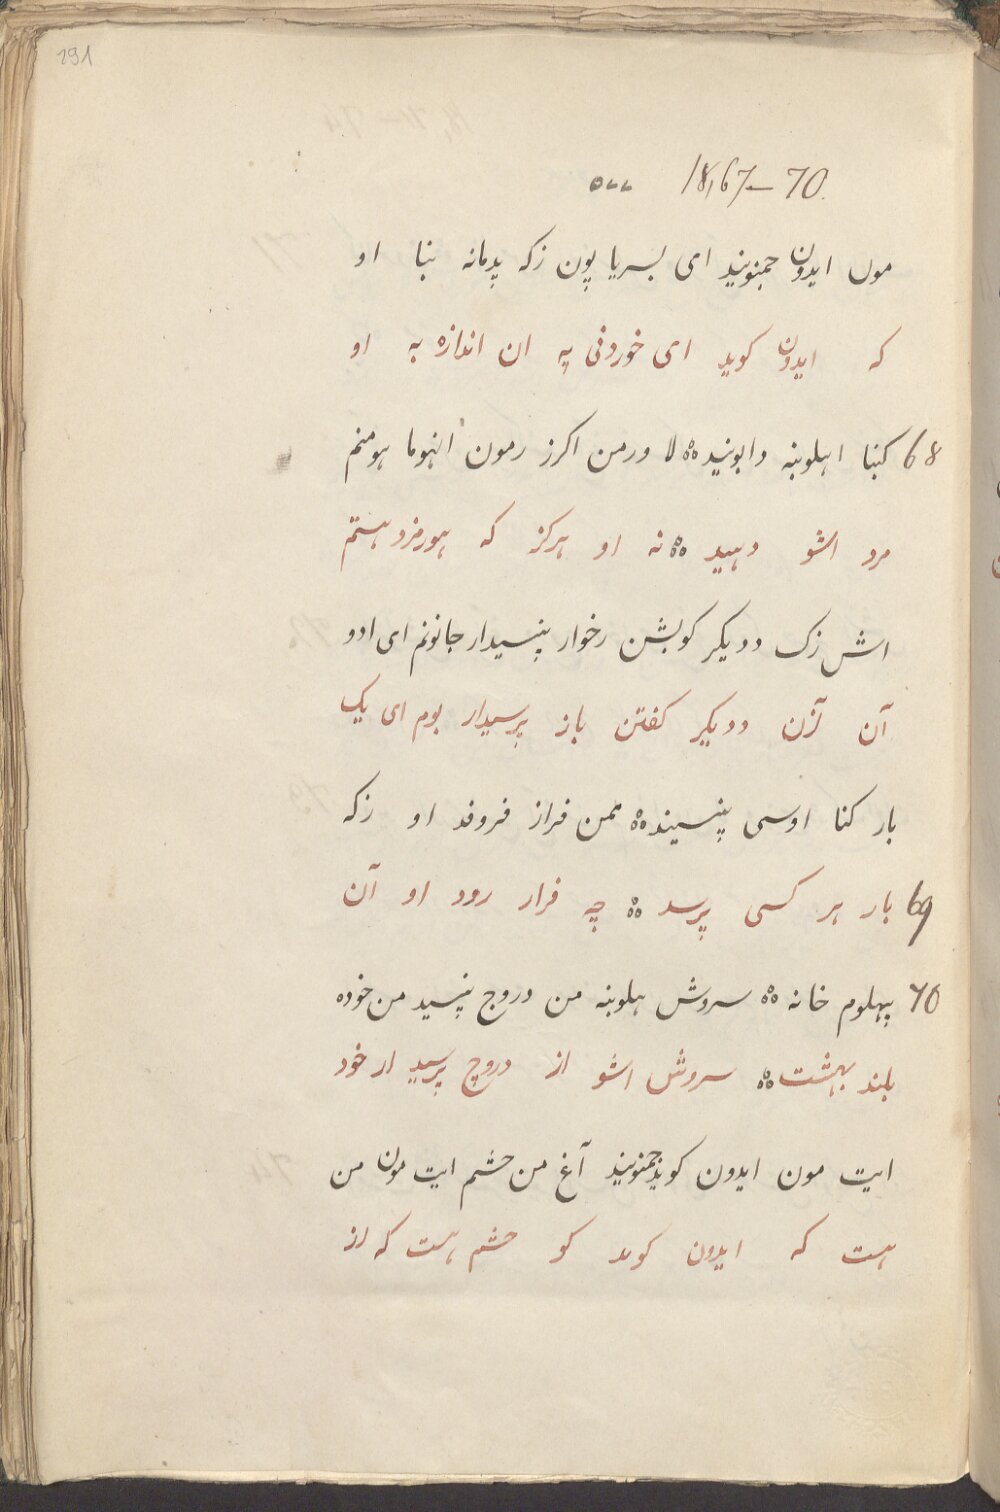 291
18,67–70 ۵۷۷
مون ایدون جمنونید ای بسریا پون زکه پدمانه بنا او
که ایدون کوید ای خوردنی په ان اندازه به او
68 کبنا اهلوبنه دابونید لا ورمن اکرز رمون انهوما هومنم
مرد اشو دهید نه او هرکز که هورمزد هستم
اش زک ددیکر کوبشن رخوار پنسیدار جانونم ای ادو
آن آزن ددیکر کفتن باز پرسیدار بوم ای یک
بار کنا اوسی پنسیند ممن فراز فروفد او زکه
69 بار هر کسی پرسد چه فرار رود او آن
70 پهلوم خانه سروش هلوبنه من دروج پنسید من خوده
بلند بهشت سروش اشو از دروج پرسید ار خود
ایت مون ایدون کوید جمنونید آغ من خشم ایت مون من
هست که ایدون کوید کو خشم هست که از